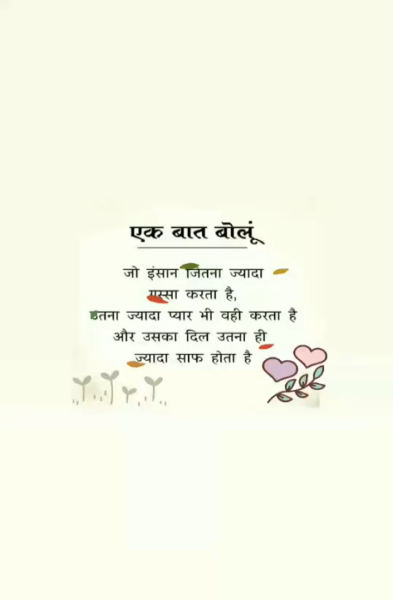 एक बात बोलूं
जो इंसान जितना ज्यादा
गुस्सा करता है,
उतना ज्यादा प्यार भी वही करता है
और उसका दिल उतना ही
ज्यादा साफ होता है